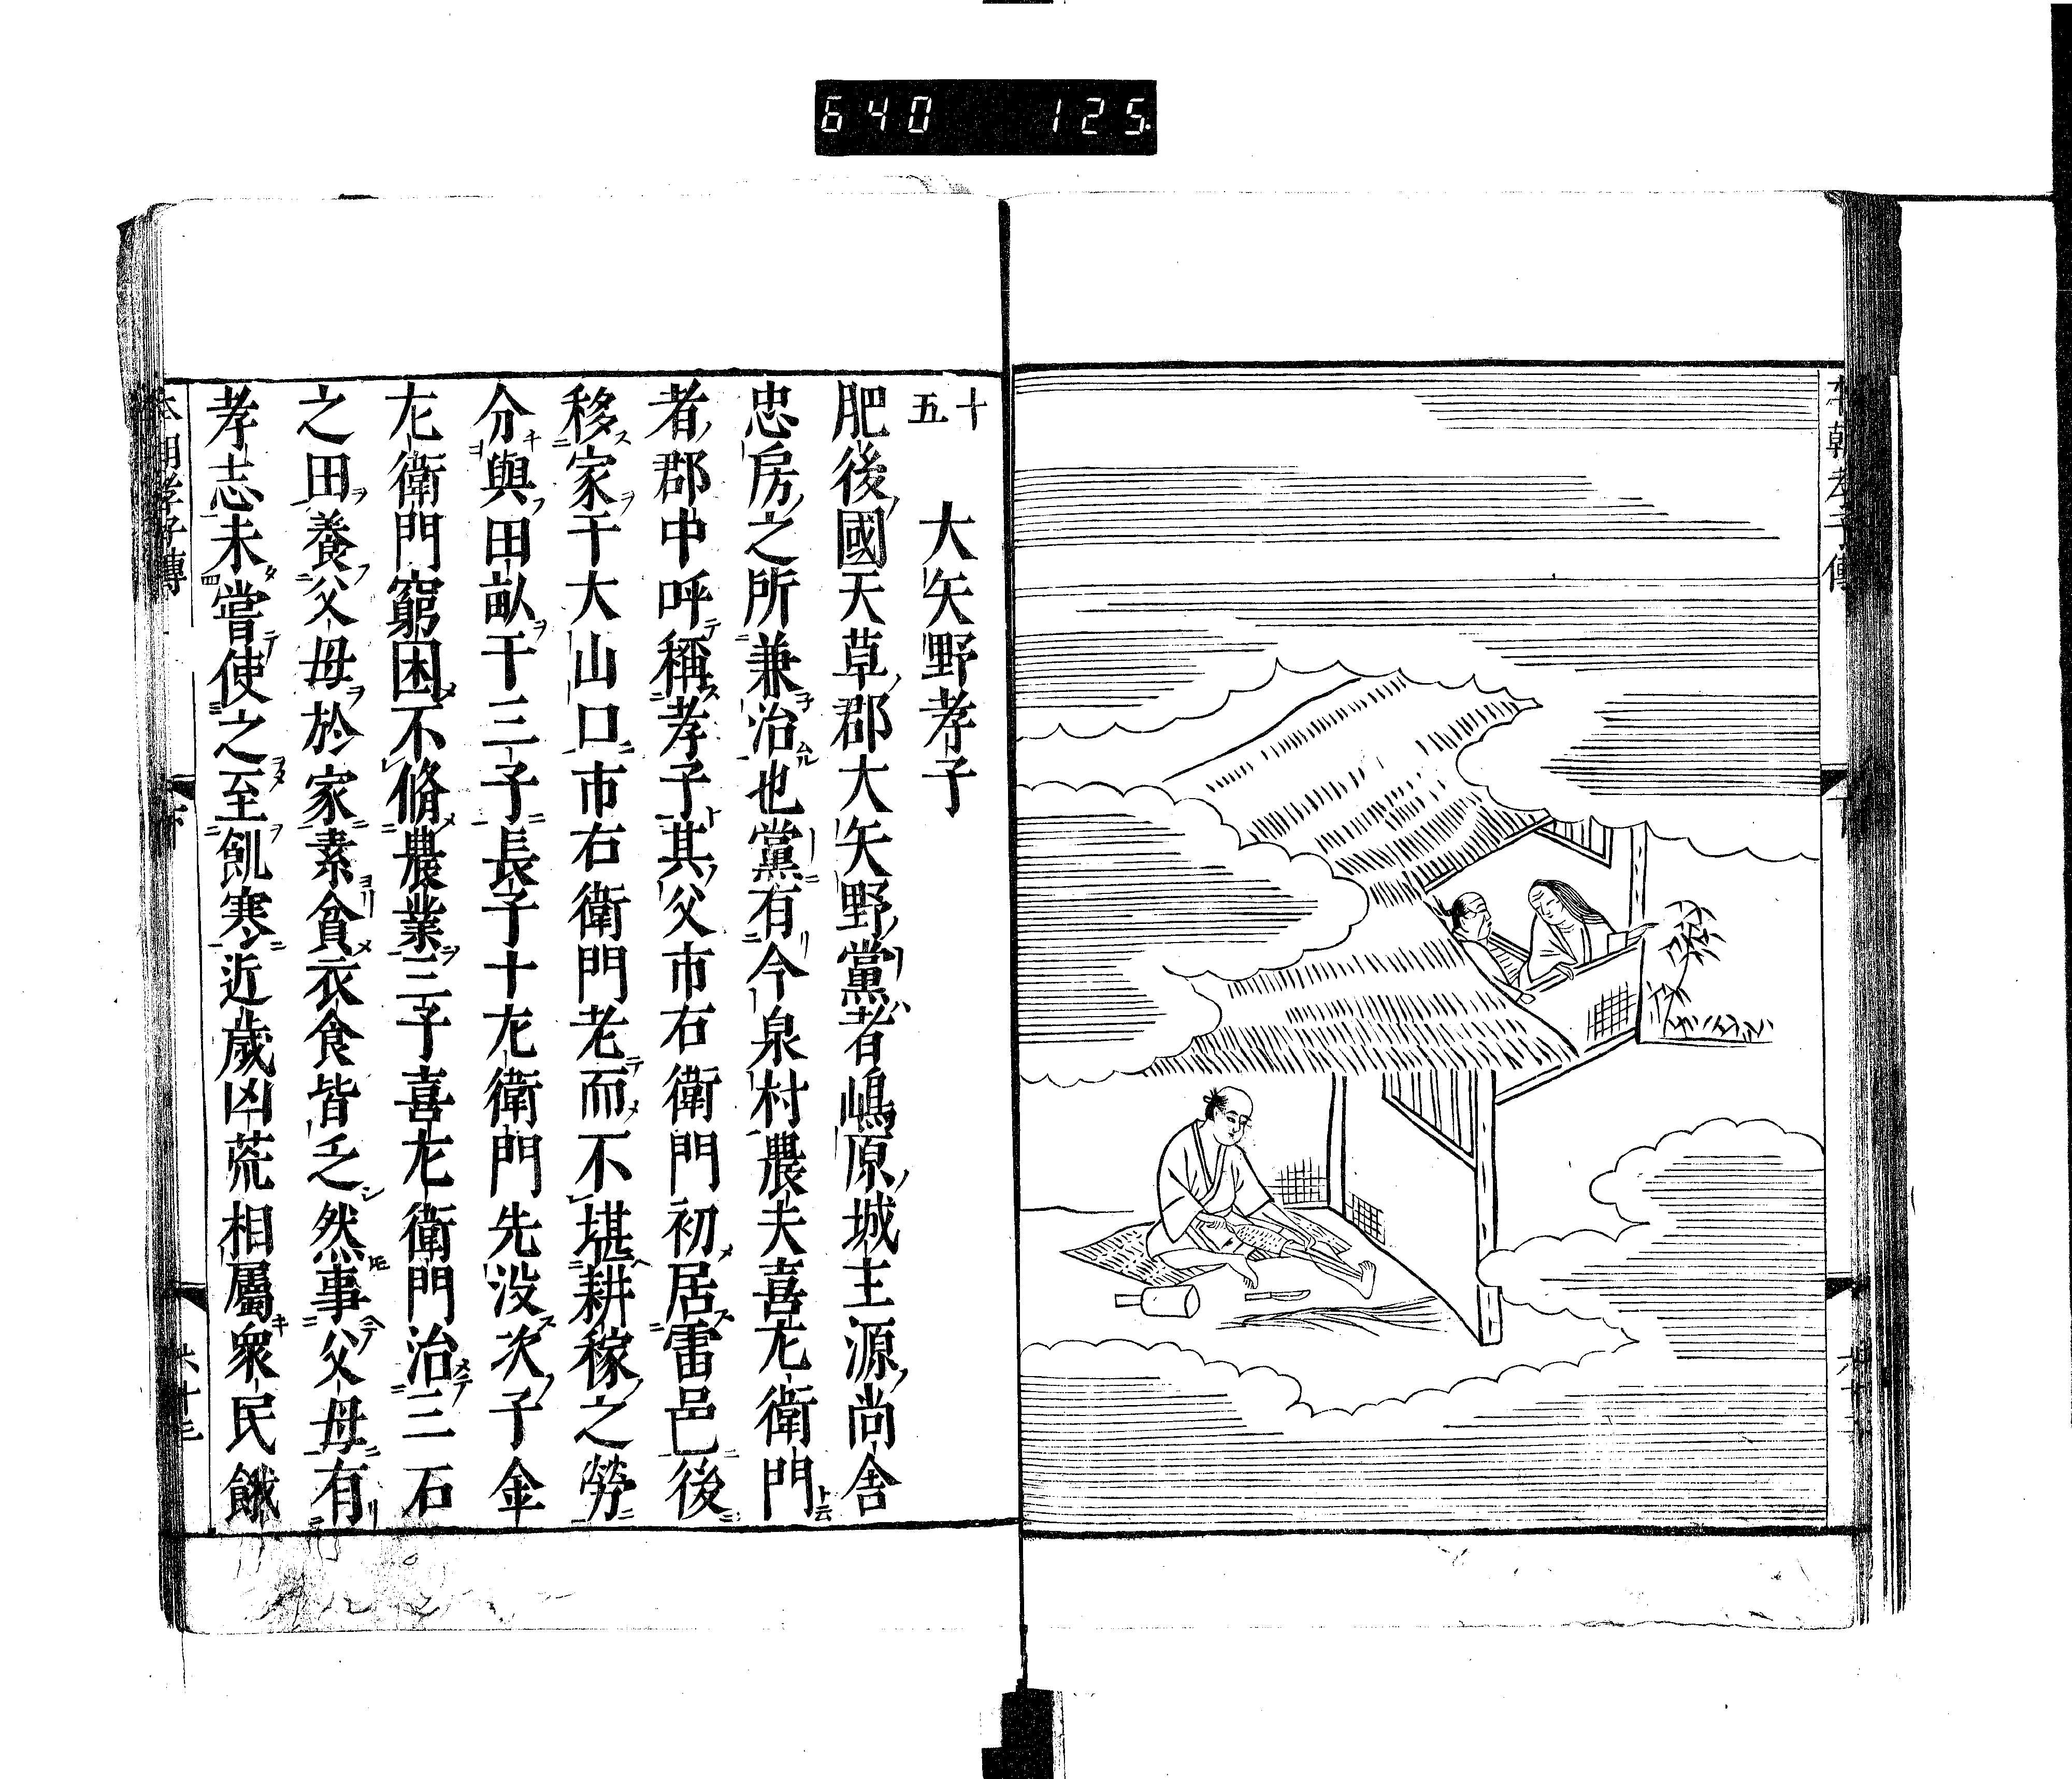 640 125
十五 大矢野孝子
肥後國天草郡大矢野黨者嶋原城主源尚舎
忠房之所兼治也黨有今泉村農夫喜左衛門
者郡中呼稱孝子其父市右衛門初居雷邑後
移家于大山口市右衛門老而不堪耕稼之勞
分與田畝于三子長子十左衛門先没次子金
左衛門窮困不脩農業三子喜左衛門治三石
之田養父母於家素貧衣食皆乏然事父母有
孝志未嘗使之至飢寒近歲凶荒相屬衆民餓
本朝孝子傳